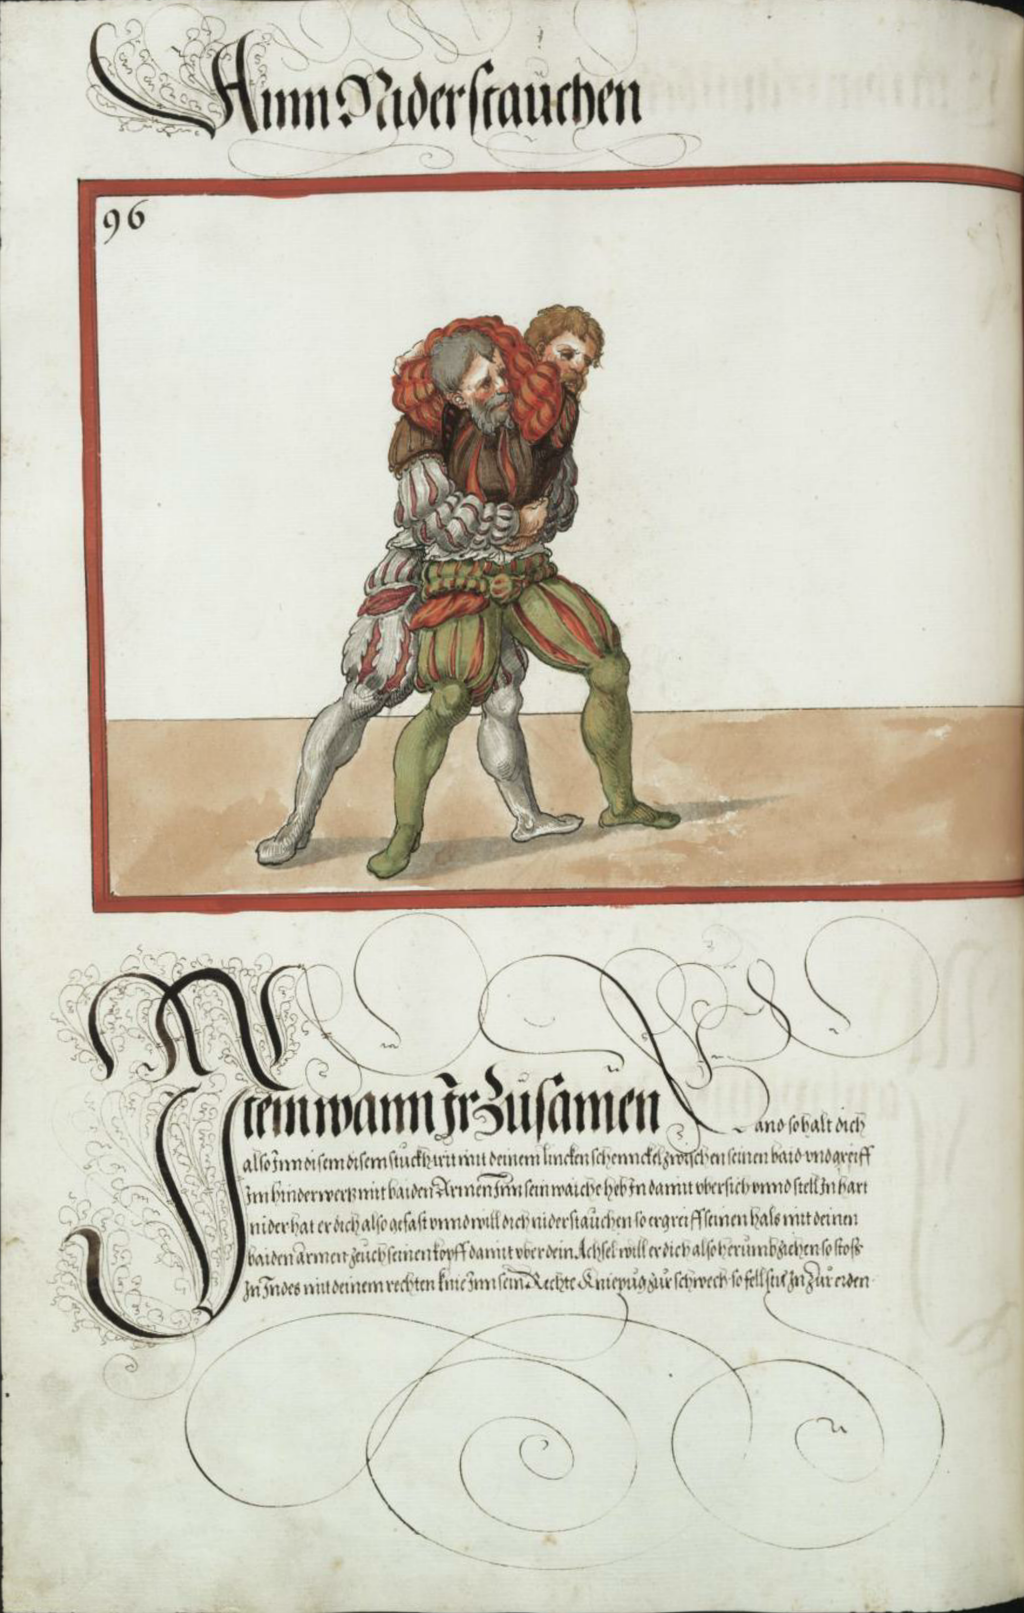 Ainn Niderstauchen
96
Item wann Ir Zusamen
gand so halt dich
also Inn disem disem stuckh trit mit deinem lincken schennckel zwischen seinen baid vnd greiff
Im hinderwertz mit baiden Armen Inn sein waiche heb In damit vbersich vnnd stell In hart
nider hat er dich also gefast vnnd will dich niderstauchen so ergreiff seinen hals mit deinen
baiden armen zeuch seinen kopff damit vber dein Achsel will er dich also herumb ziehen so stoss
In Indes mit deinem rechten knie Inn sein Rechte Kniepug zur schwech so fellstu In zur erden